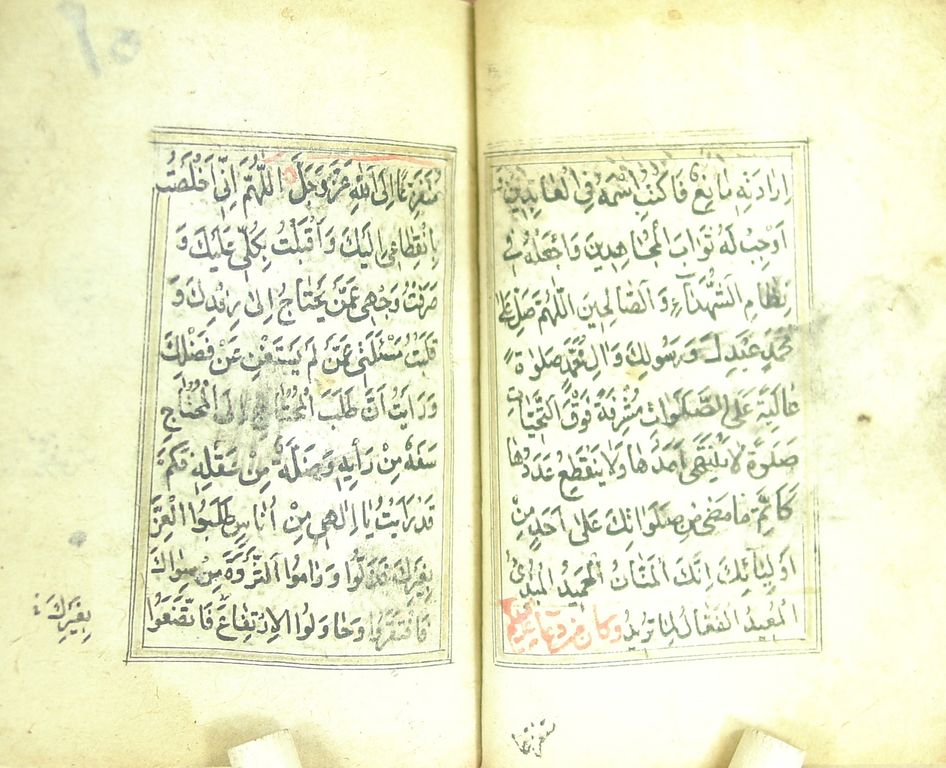 اِرَادَتِهِ مَانِعٌ فَاكْتُبِ اسْمَهُ فِى الْعَابِدِينَ وَ
اَوْجِبْ لَهُ ثَوَابَ الْمُجَاهِدِينَ وَاجْعَلْهُ فِى
نِظَامِ الشُّهَدَآءِ وَ الصَّالِحِينَ اَللّٰهُمَّ صَلِّ عَلىٰ
مُحَمَّدٍ عَبْدِكَ وَرَسُولِكَ وَ اٰلِ مُحَمَّدٍ صَلوٰةً
عَالِيَةً عَلَى الصَّلَوَاتِ مُشْرِفَةً فَوْقَ التَّحِيَّاتِ
صَلوٰةً لَا يَنْتَهِى اَمَدُهَا وَلَا يَنْقَطِعُ عَدَدُهَا
كَاَتَمِّ مَا مَضىٰ مِنْ صَلَوَاتِكَ عَلىٰ اَحَدٍ مِنْ
اَوْلِيَآئِكَ اِنَّكَ الْمَنَّانُ الْحَمِيدُ الْمُبْدِئُ
الْمُعِيدُ الْفَعَّالُ لِمَا تُرِيدُ وكان من دعائه عليه السلم
متفزعا
مُتَفَزِّعًا اِلَى اللهِ عَزَّ وَجَلَّ اَللّٰهُمَّ اِنِّى اَخْلَصْتُ
بِانْقِطَاعِى اِلَيْكَ وَ اَقْبَلْتُ بِكُلِّى عَلَيْكَ وَ
صَرَفْتُ وَجْهِى عَمَّنْ يَحْتَاجُ اِلىٰ رِفْدِكَ وَ
قَلَبْتُ مَسْئَلَتِى عَمَّنْ لَمْ يَسْتَغْنِ عَنْ فَضْلِكَ
وَ رَاَيْتُ اَنَّ طَلَبَ الْمُحْتَاجِ اِلَى الْمُحْتَاجِ
سَفَهٌ مِنْ رَأْيِهِ وَ ضَلَّةٌ مِنْ عَقْلِهِ فَكَمْ
قَدْ رَاَيْتُ يَا اِلٰهِى مِنْ اُنَاسٍ طَلَبُوا الْعِزَّ
بِغَيْرِكَ فَذَلُّوا وَ رَامُوا الثَّرْوَةَ مِنْ سِوَاكَ
فَافْتَقَرُوا وَحَاوَلُوا الْاِرْتِفَاعَ فَاتَّضَعُوا
بِغَيْرِكَ